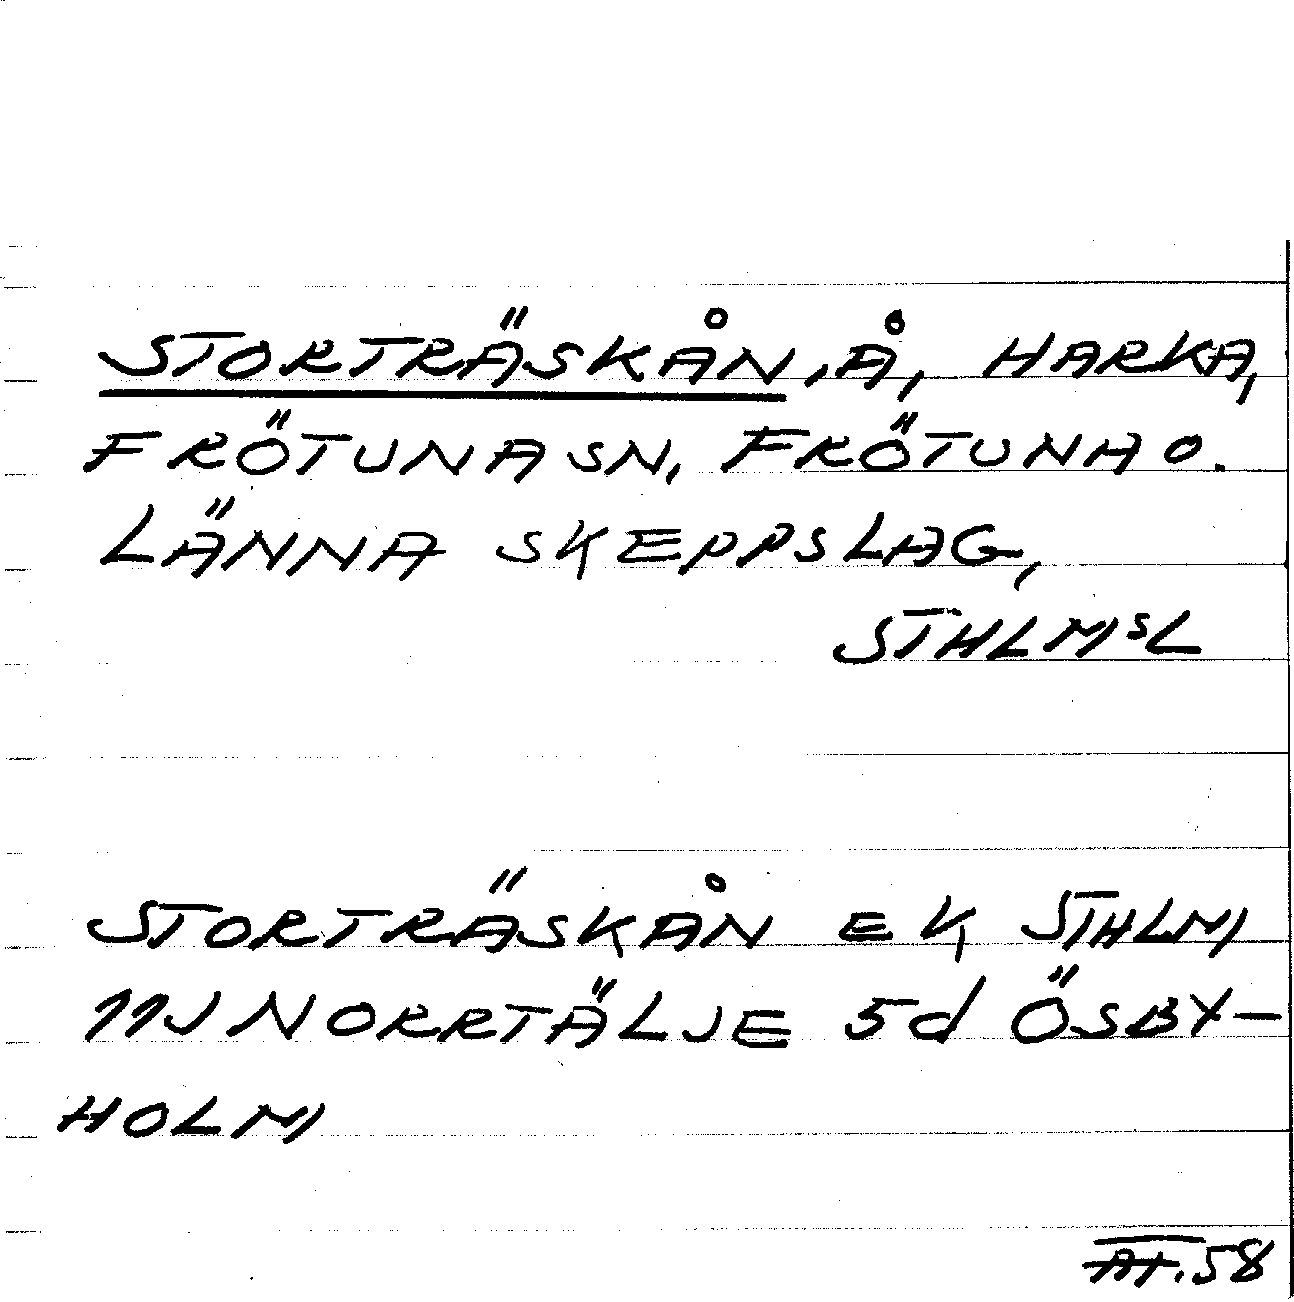 STORTRÄSKÅN, Å, HARKA,
FRÖTUNA SN, FRÖTUNA O.
LÄNNA SKEPPSLAG,
STHLMSL
STORTRÄSKÅN EK STHLM
11J NORRTÄLJE 5d ÖSBY-
HOLM
AT.58